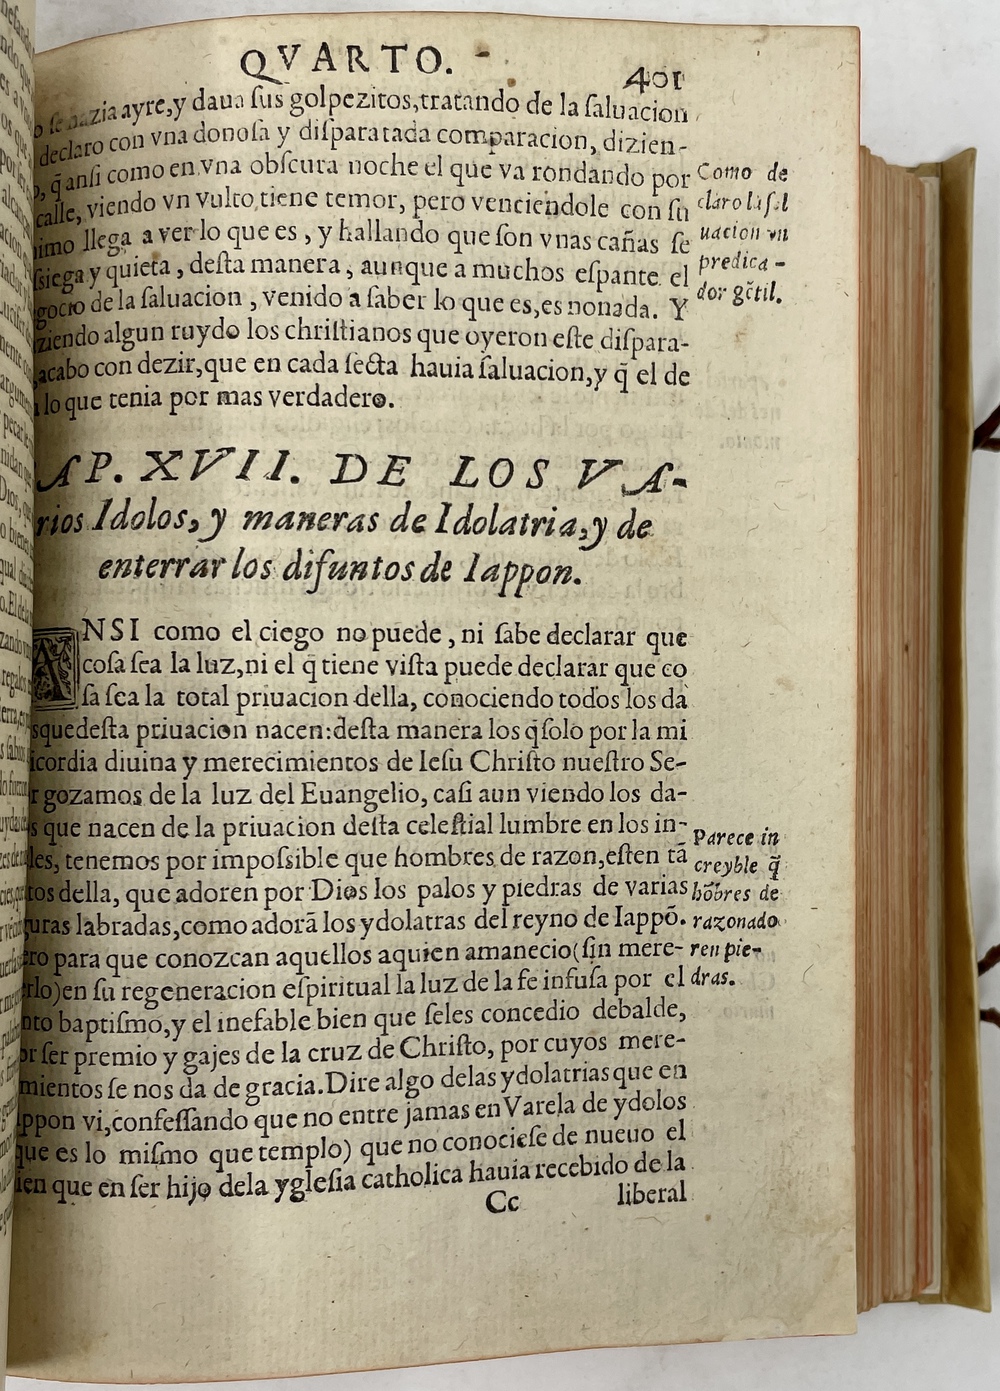 QVARTO.
401
ayre, y daua ſus golpezitos, tratando de la ſaluacion
declaro con vna donoſa y diſparatada comparacion, dizien-
q̃ anſi como en vna obſcura noche el que va rondando por
calle, viendo vn vulto, tiene temor, pero venciendole con ſu
imo llega a ver lo que es, y hallando que ſon vnas cañas ſe
ſsiega y quieta, deſta manera, aunque a muchos eſpante el
gocio de la ſaluacion, venido a ſaber lo que es, es nonada. Y
ziendo algun ruydo los chriſtianos que oyeron eſte diſpara-
acabo con dezir, que en cada ſecta hauia ſaluacion, y q̃ el de
lo que tenia por mas verdadero.
Como de
claro la ſal
uacion vn
predica-
dor gẽtil.
AP. XVII. DE LOS VA-
rios Idolos, y maneras de Idolatria, y de
enterrar los difuntos de Iappon.
ANSI como el ciego no puede, ni ſabe declarar que
coſa ſea la luz, ni el q̃ tiene viſta puede declarar que co
ſa ſea la total priuacion della, conociendo todos los da
s que deſta priuacion nacen: deſta manera los q̃ ſolo por la mi
icordia diuina y merecimientos de Ieſu Chriſto nueſtro Se-
r gozamos de la luz del Euangelio, caſi aun viendo los da-
s que nacen de la priuacion deſta celeſtial lumbre en los in-
les, tenemos por impoſsible que hombres de razon, eſten tã
tos della, que adoren por Dios los palos y piedras de varias
uras labradas, como adorã los ydolatras del reyno de Iappõ.
ro para que conozcan aquellos a quien amanecio (ſin mere-
rlo) en ſu regeneracion eſpiritual la luz de la fe infuſa por el
nto baptiſmo, y el inefable bien que ſeles concedio debalde,
or ſer premio y gajes de la cruz de Chriſto, por cuyos mere-
mientos ſe nos da de gracia. Dire algo delas ydolatrias que en
ppon vi, confeſſando que no entre jamas en Varela de ydolos
que es lo miſmo que templo) que no conocieſe de nueuo el
ien que en ſer hijo dela ygleſia catholica hauia recebido de la
Parece in
creyble q̃
hõbres de
razon ado
ren pie-
dras.
Cc
liberal